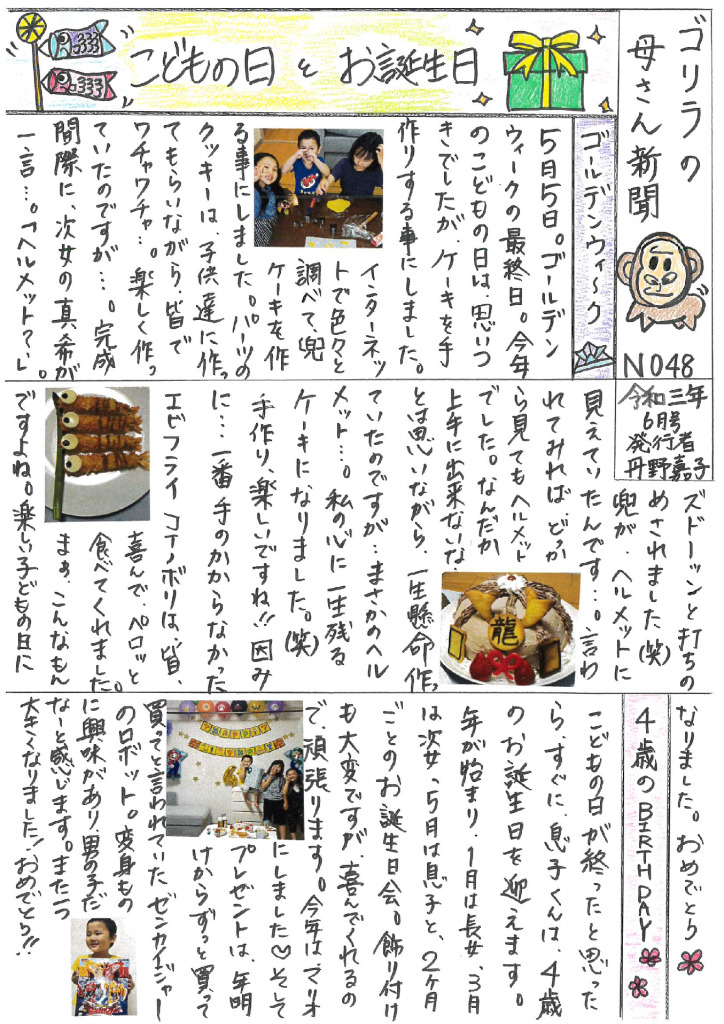 こどもの日とお誕生日
ゴリラの
母さん新聞
NO48
令和三年
6月号
発行者
丹野嘉子
ゴールデンウィ〜ク
5月5日。ゴールデン
ウィークの最終日。今年
のこどもの日は、思いつ
きでしたが、ケーキを手
作りする事にしました。
インターネッ
トで色々と
調べて、兜
ケーキを作
る事にしました。パーツの
クッキーは、子供達に作っ
てもらいながら、皆で
ワチャワチャ…。楽しく作っ
ていたのですが…。完成
間際に、次女の真希が
一言…。「ヘルメット?」。
ズドーンッと打ちの
めされました(笑)
兜が、ヘルメットに
見えていたんです…。言わ
れてみれば、どっか
ら見てもヘルメット
でした。なんだか
上手に出来ないな、
とは思いながら、一生懸命作っ
ていたのですが…まさかのヘル
メット…。私の心に一生残る
ケーキになりました。(笑)
手作り、楽しいですね!!因み
に…一番手のかからなかった
エビフライコイノボリは、皆、
喜んで、ペロッと
食べてくれました。
まぁ、こんなもん
ですよね。楽しい子どもの日に
なりました。おめでとう
龍
4歳のBIRTHDAY
こどもの日が終ったと思った
らすぐに、息子くんは、4歳
のお誕生日を迎えます。
年が始まり、1月は長女、3月
は次女、5月は息子と、2ヶ月
ごとのお誕生日会。飾り付け
も大変ですが、喜んでくれるの
で、頑張ります。今年はマリオ
にしました♡そして
プレゼントは、年明
けからずっと買って
買ってと言われていたゼンカイジャー
のロボット。変身もの
に興味があり、男の子だ
なーと感じます。また一つ
大きくなりました!おめでとう!!